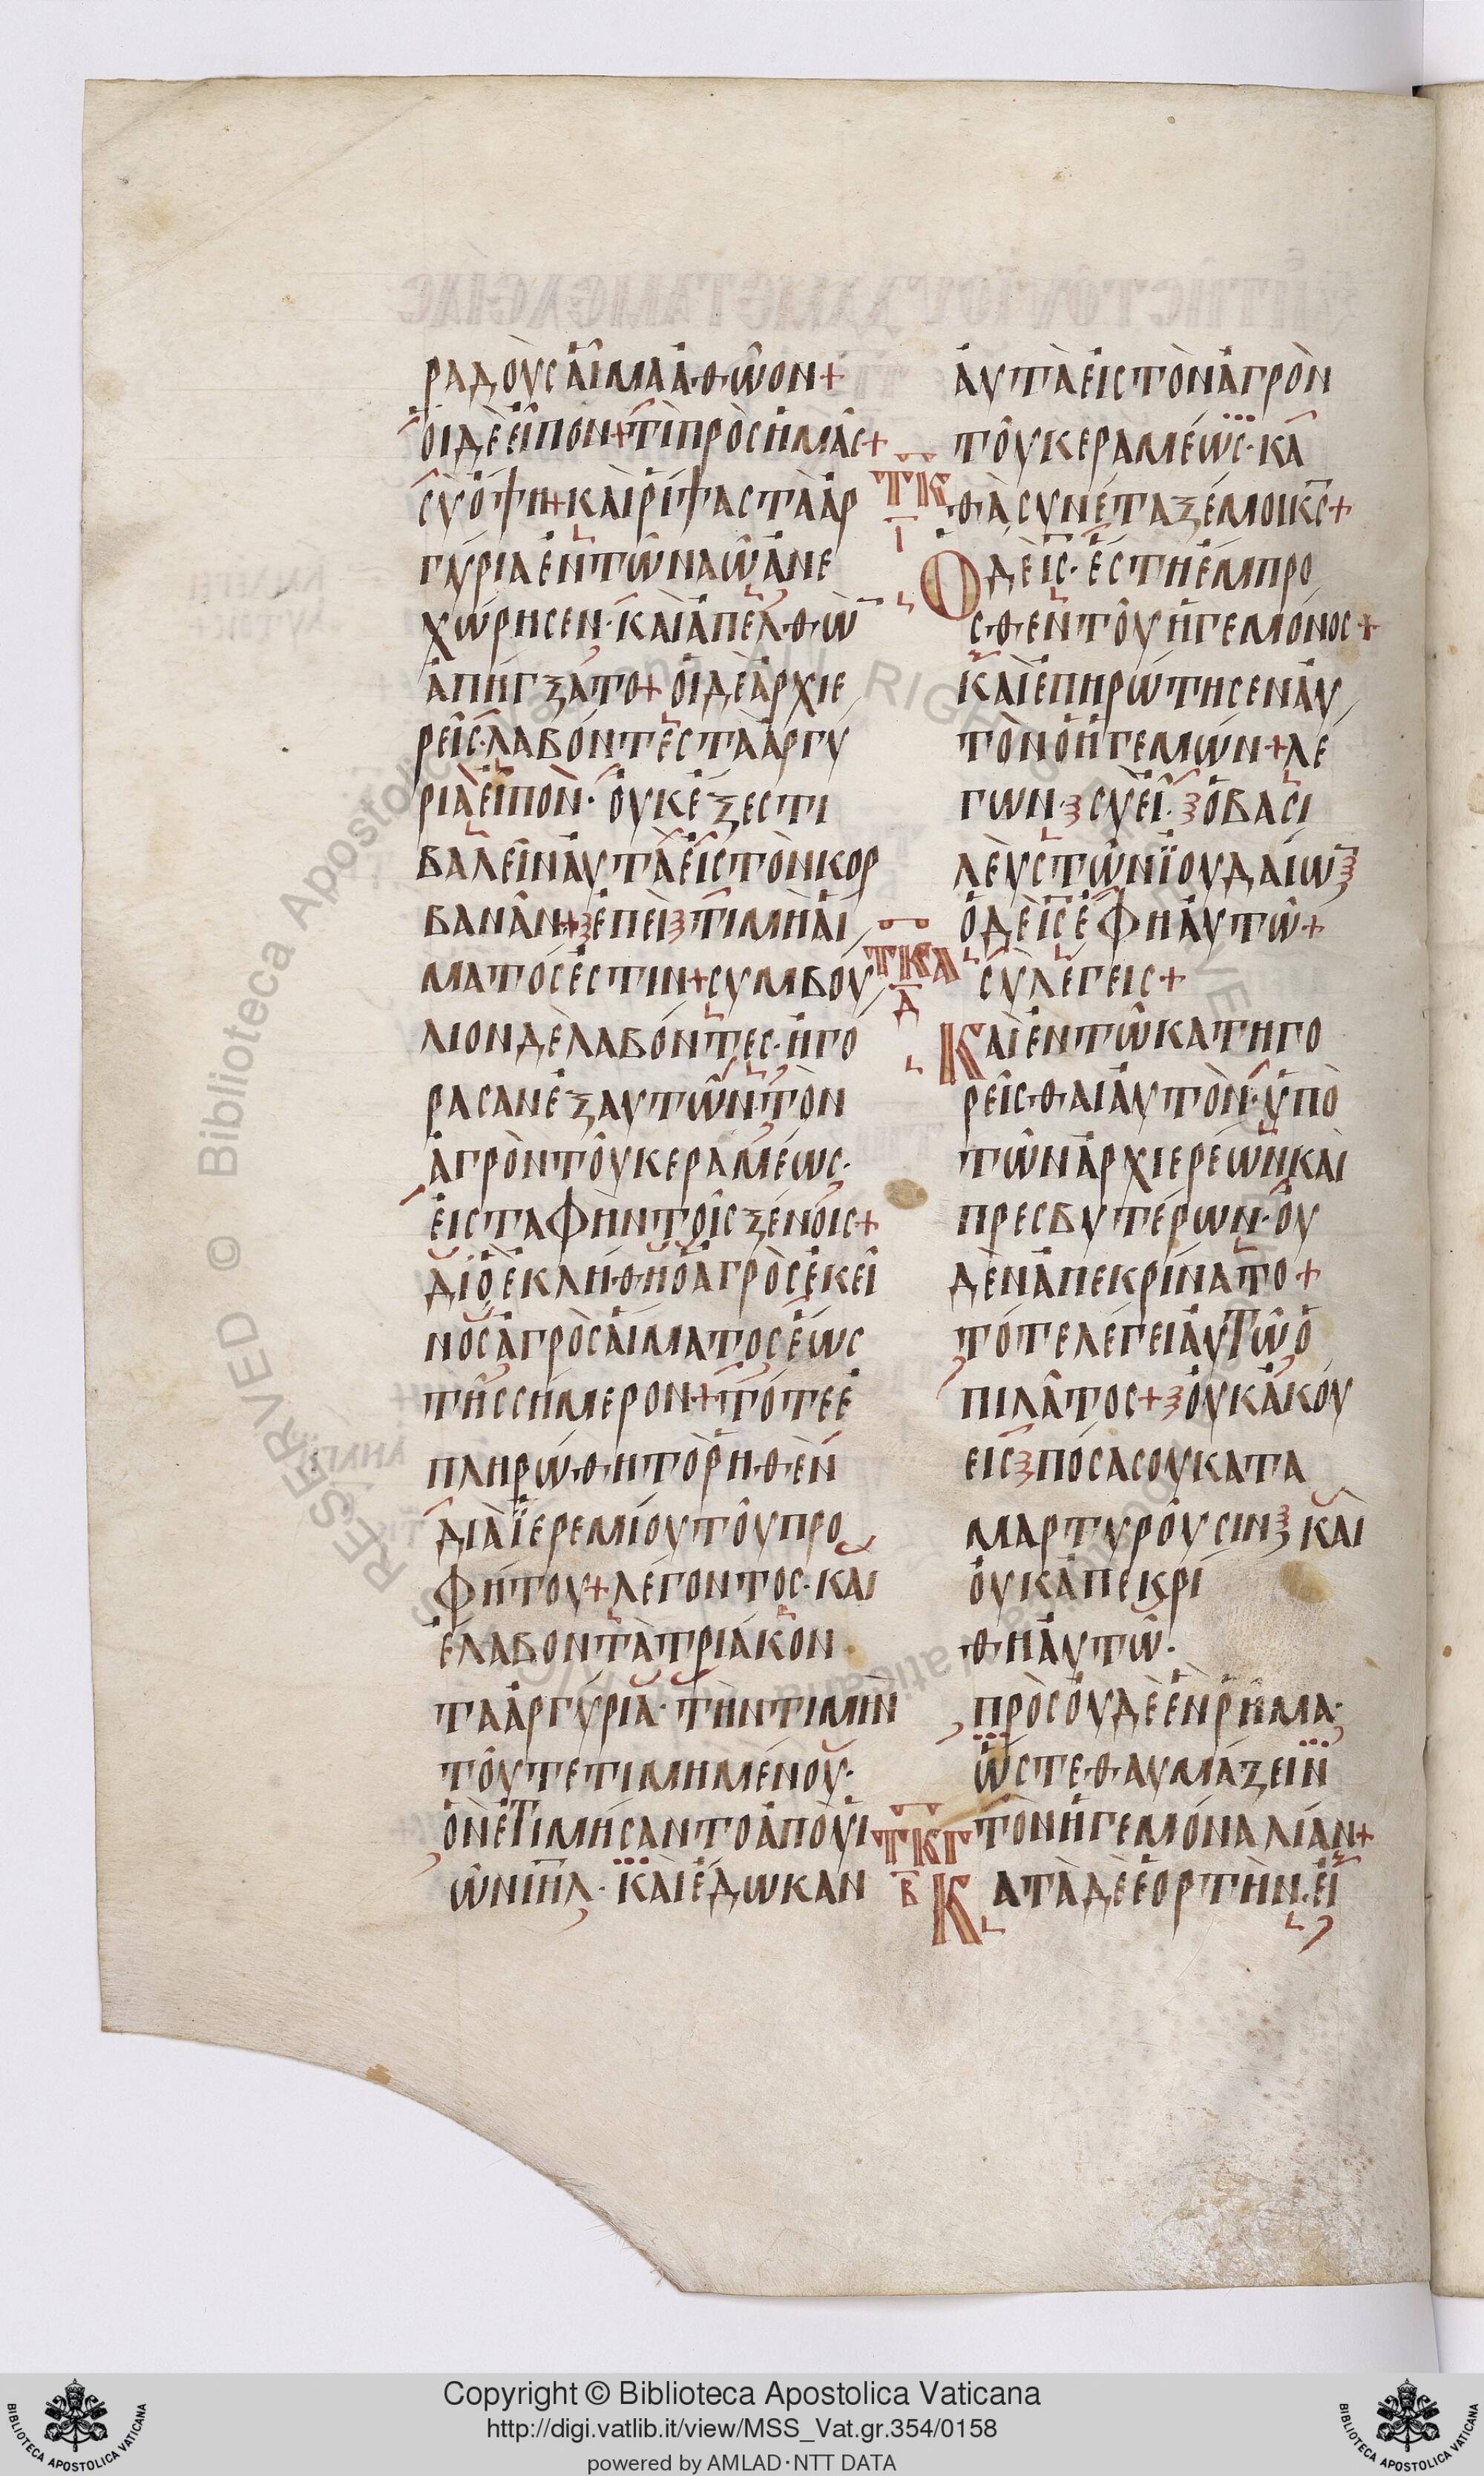 ραδοὺς ἀῖμα ἀθῶον+
ὁι δὲ εἶπον+τί πρὸς ἡμᾶς+
σὺ ὄψη+καὶ ῥίψας τὰ ἀρ
γύρια ἐν τῶ ναῶ ἀνε
χώρησεν· καὶ ἀπελθὼ̅
ἀπήγξατο+ ὁι δὲ ἀρχιε
ρεῖς· λαβόντες τὰ ἀργύ
ρια εἶπον· ὀυκ έξεστι
βαλεῖν ἀυτὰ εἰς τὸν κορ
βανᾶν+ἐπεὶ τιμὴ ἁί
ματός ἐστιν+συμβού
λιον δὲ λαβόντες· ἠγό
ρασαν ἐξ αυτῶν· τὸν
ἀγρὸν τοῦ κεραμέως·
εἰς ταφὴν τοῖς ξένοις+
διὸ ἐκλήθη ὁ ἀγρὸς ἐκεῖ
νος ἀγρὸς ἁίματος έως
τῆς σήμερον+τότε ἐ
πληρώθη τὸ ῥηθὲν
διὰ ϊερεμίου τοῦ προ
φήτου+λέγοντος· καὶ
έλαβον τὰ τριάκον
τα ἀργύρια· τὴν τιμὴν
τοῦ τετιμημένου·
ὃν ἐτιμήσαντο ἀπο ὑι
ῶν ιη̅λ· καὶ έδωκαν
ἀυτὰ εἰς τὸν ἀγρὸν
τοῦ κεραμέως· κα
θὰ συνέταξέ μοι κ̅ς+
τκ
ι
Ὁ δὲ ι̅ς· έστη έμπρο
σθεν τοῦ ἡγεμόνος+
καὶ ἐπηρώτησεν ἀυ
τὸν ὁ ἡγεμών+λέ
γων· σὺ εἶ· ὁ βασι
λεὺς τῶν ϊουδαίω̅
ὁ δὲ ι̅ς έφη ἀυτῶ+
τκα
δ
σὺ λέγεις+
Καὶ ἐν τῶ κατηγο
ρεῖσθαι ἀυτὸν· ὑπὸ
τῶν ἀρχιερέων καὶ
πρεσβυτέρων· ὀυ
δὲν ἀπεκρίνατο+
τότε λέγει ἀυτῶ ὁ
πιλᾶτος+ὀυκ ἀκού
εις πόσα σου κατα
μαρτυροῦσιν καὶ
ὀυκ ἀπεκρί
θη ἀυτῶ·
πρὸς ὀυδὲ ἓν ῥῆμα·
ὥστε θαυμάζειν
τὸν ἡγεμόνα λίαν+
τκγ
β
Κατὰ δὲ ἑορτὴν· εἰ
Copyright © Biblioteca Apostolica Vaticana
http://digi.vatlib.it/view/MSS_Vat.gr.354/0158
powered by AMLAD·NTT DATA